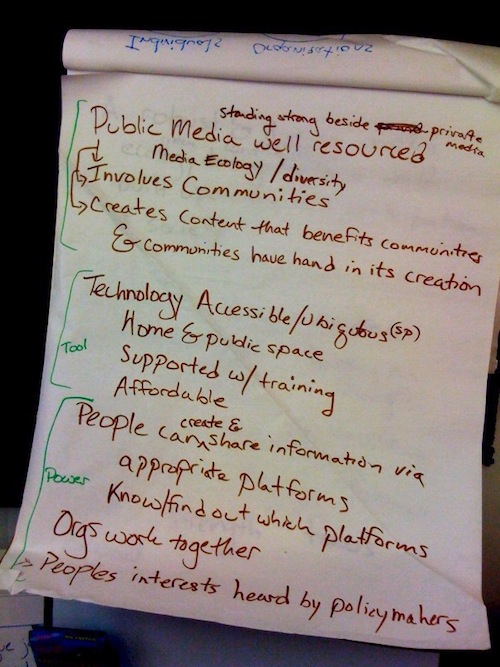 Individuals Organisations
standing strong beside private media
Public Media well resourced
Media Ecology / diversity
Involves Communities
Creates Content that benefits communities
& communities have hand in its creation
Technology Accessible/Ubiqubous (sp)
Home & public space
Tool
Supported w/ training
Affordable
create &
People can share information via
appropriate platforms
Power
Know/find out which platforms
Orgs work together
Peoples interests heard by policymakers